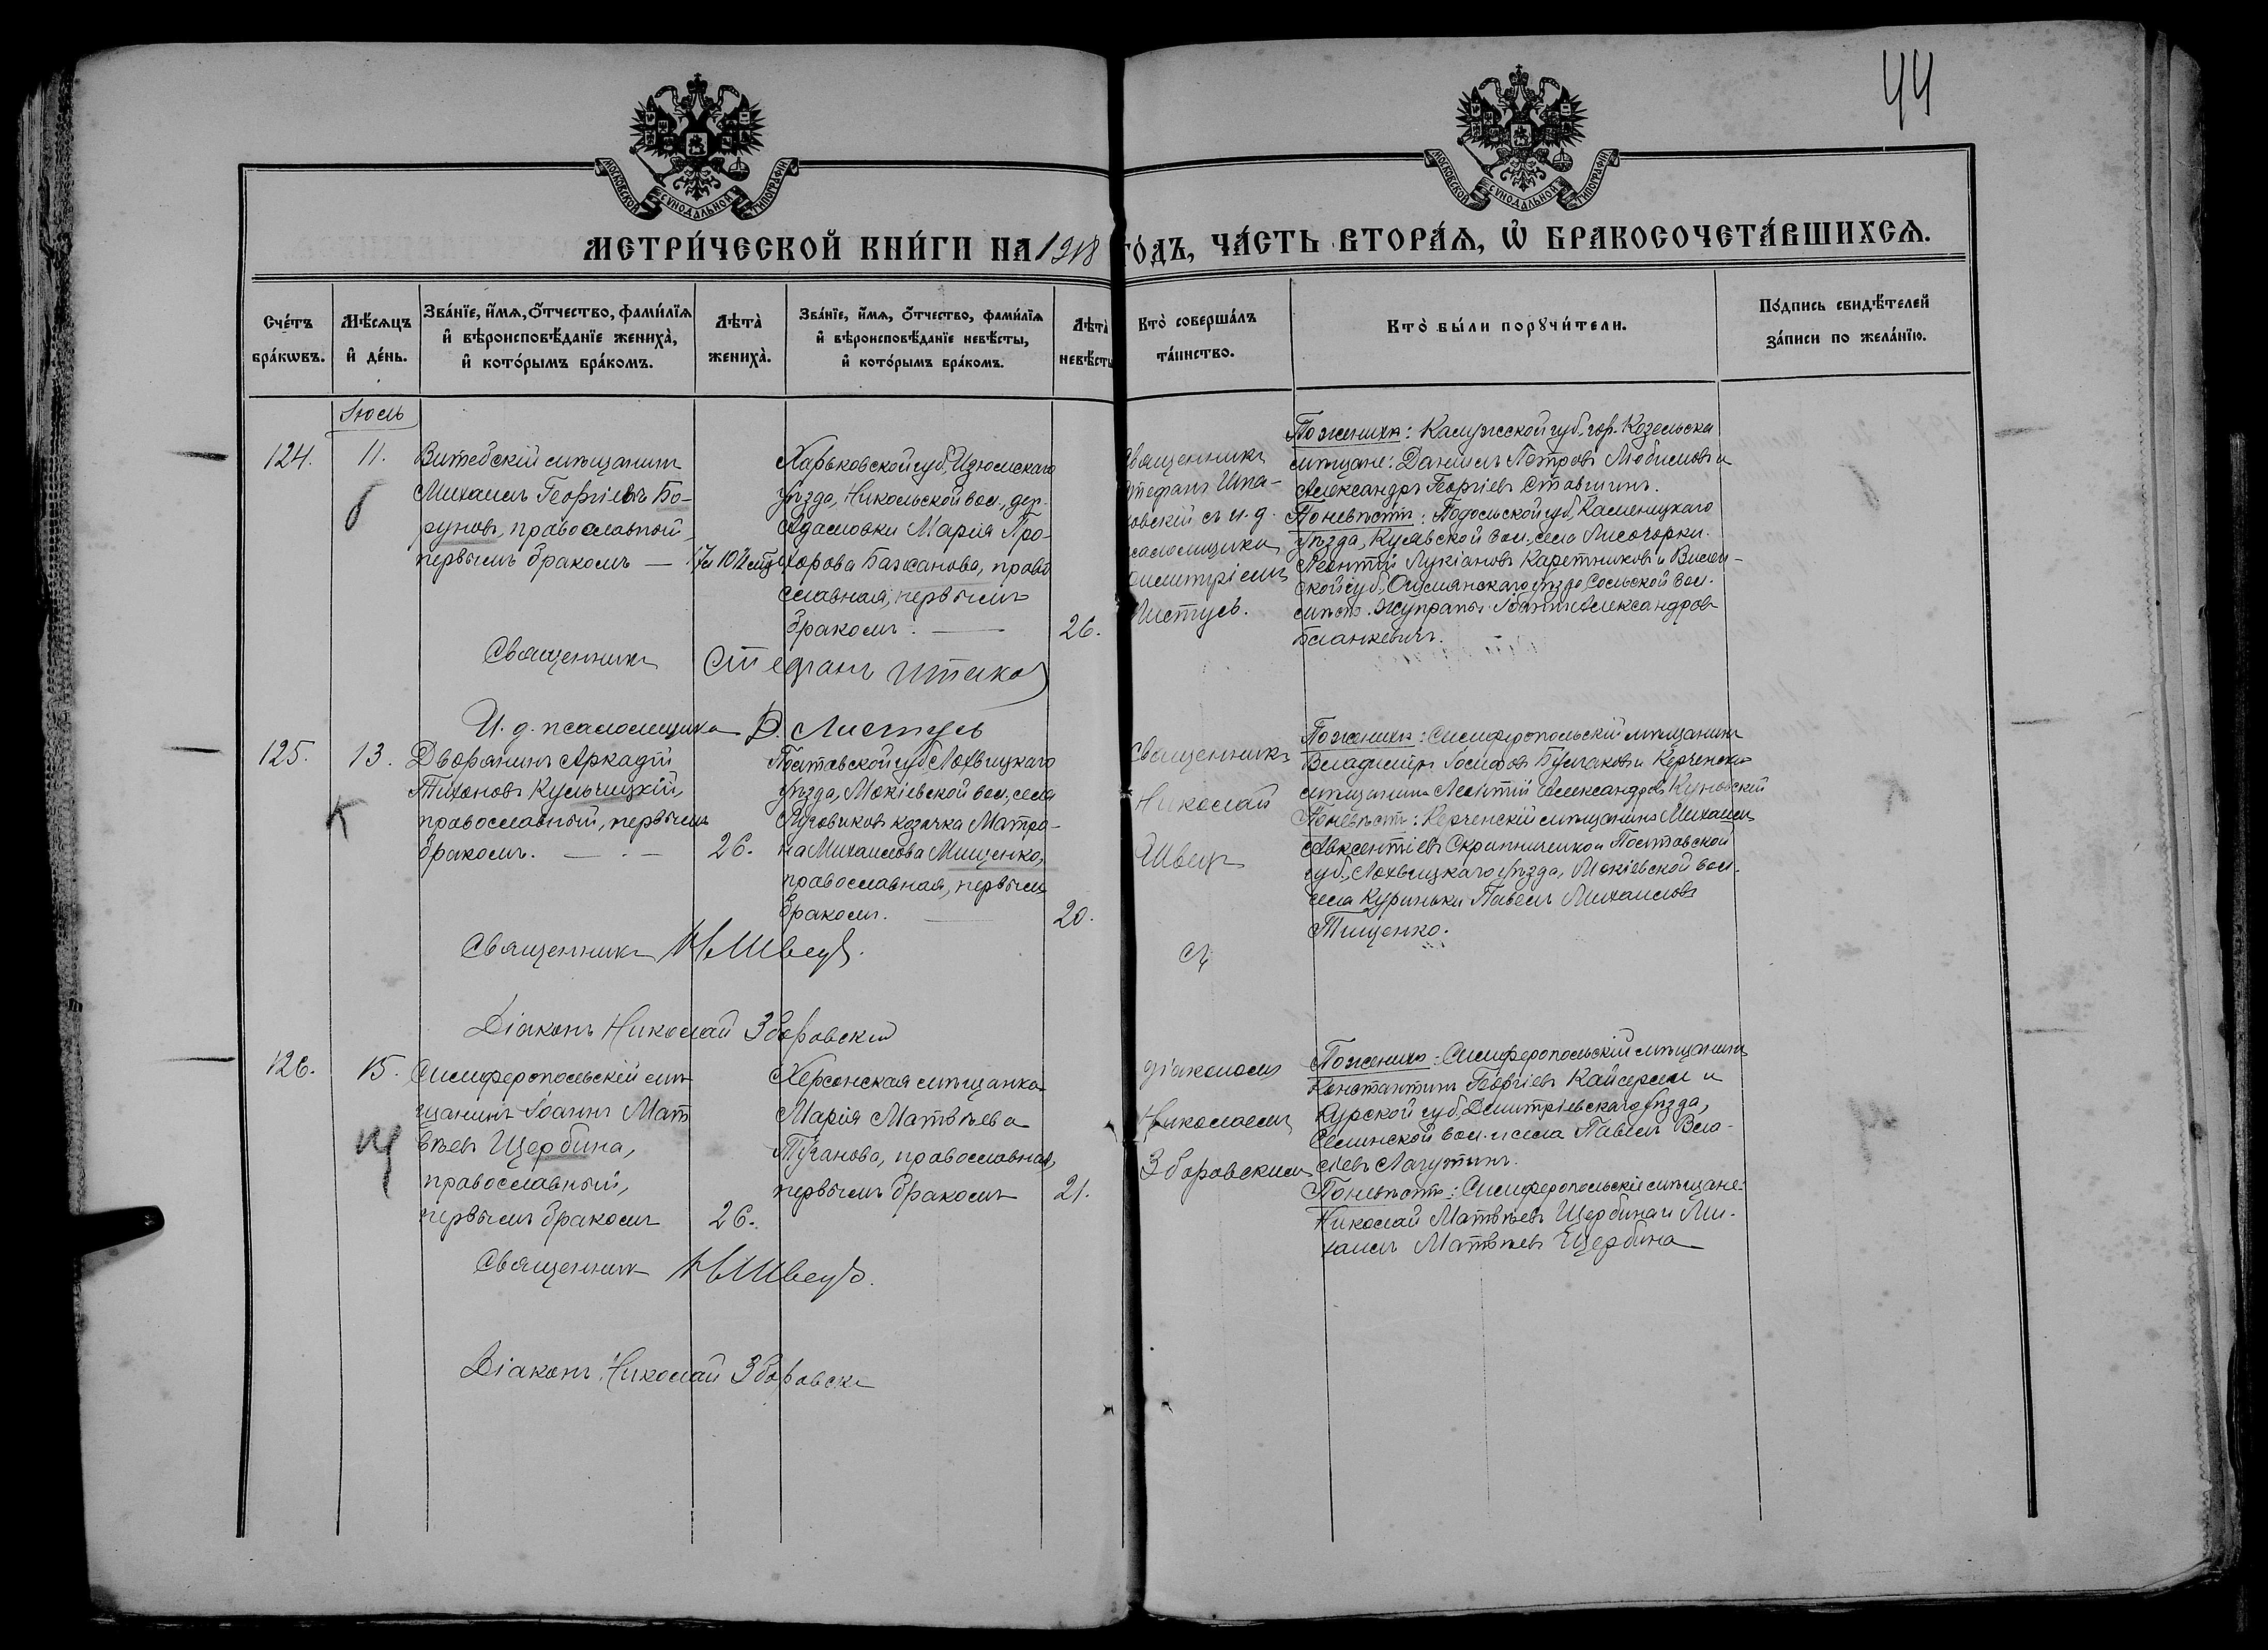 44
МОСКОВСКОЙ СѴНОДАЛЬНОЙ ТИПОГРАФІИ
МОСКОВСКОЙ СѴНОДАЛЬНОЙ ТИПОГРАФІИ
МЕТРИ́ЧЕСКОЙ КНИ́ГИ НА 1918 ГО́ДЪ, ЧА́СТЬ ВТОРА́Ѧ, Ѡ҆ БРАКОСОЧЕТА́ВШИХСѦ.
Сче́тъ
бра́кωвъ.
Мѣ́сѧцъ
и҆ де́нь.
Зва́нїе, и҆́мѧ, ѻ҆́тчество, фами́лїѧ
и҆ вѣроисповѣ́данїе жениха̀,
и҆ кото́рымъ бра́комъ.
Лѣта̀
жениха̀.
Зва́нїе, и҆́мѧ, ѻ҆́тчество, фами́лїѧ
и҆ вѣроисповѣ́данїе невѣ́сты,
и҆ кото́рымъ бра́комъ.
Лѣта̀
невѣ́сты
Кто̀ соверша́лъ
та́инство.
Кто̀ бы́ли порꙋчи́тели.
По́дпись свидѣ́телей
за́писи по жела́нїю.
Іюль
124.
11.
б
Витебскій мѣщанинъ
Михаилъ Георгіевъ Бо-
руновъ, православный,
первымъ бракомъ —
17 л. 10½ мѣс.
Харьковской губ., Изюмскаго
уѣзда, Никольской вол., дер.
Адамовки Марія Про-
хорова Бажанова, право
славная, первымъ
бракомъ. —
26.
священникъ
Стефанъ Шпа-
ковскій съ и. д.
псаломщика
Димитріемъ
Листусъ.
По женихѣ: Калужской губ. гор. Козельска
мѣщане: Даніилъ Петровъ Любимовъ и
Александръ Георгіевъ Ставшинъ.
По невѣстѣ: Подольской губ., Каменицкаго
уѣзда, Кулявской вол., села Лисогорки
Леонтій Лукіановъ Каретниковъ и Вилен-
ской губ., Ошмянскаго уѣзда Сольской вол.
мѣст. Жупраны Іоаннъ Александровъ
Бланкевичъ.
Священникъ Стефанъ Шпако
И. д. псаломщика Д. Листусъ
125.
13.
К
Дворянинъ Аркадій
Тихоновъ Кульчицкій,
православный, первымъ
бракомъ. —
26.
Полтавской губ., Лохвицкаго
уѣзда, Мокіевской вол., села
Луговиковъ козачка Матро-
на Михаилова Мищенко,
православная, первымъ
бракомъ. —
20.
священникъ
Николай
Швецъ
съ
По женихѣ: Симферопольскій мѣщанинъ
Владиміръ Іосифовъ Булгаковъ и Керченскій
мѣщанинъ Леонтій Александровъ Куновскій
По невѣстѣ: Керченскій мѣщанинъ Михаилъ
Авксентіевъ Скрипниченко и Полтавской
губ., Лохвицкаго уѣзда, Мокіевской вол.
села Куриньки Павелъ Михаиловъ
Тищенко.
Священникъ Н. Швецъ.
Діаконъ Николай Зборовскій
126.
15.
Щ
Симферопольскій мѣ-
щанинъ Іоаннъ Мат
вѣевъ Щербина,
православный,
первымъ бракомъ
26.
Херсонская мѣщанка
Марія Матвѣева
Туганова, православная,
первымъ бракомъ
21.
діакономъ
Николаемъ
Зборовскимъ
По женихѣ: Симферопольскій мѣщанинъ
Константинъ Георгіевъ Кайсерли и
Курской губ., Дмитріевскаго уѣзда,
Селинской вол. и села Павелъ Вла-
сіевъ Лагутинъ.
По невѣстѣ: Симферопольскіе мѣщане:
Николай Матвѣевъ Щербина и Ми-
хаилъ Матвѣевъ Щербина
Священникъ Н. Швецъ.
Діаконъ Николай Зборовск